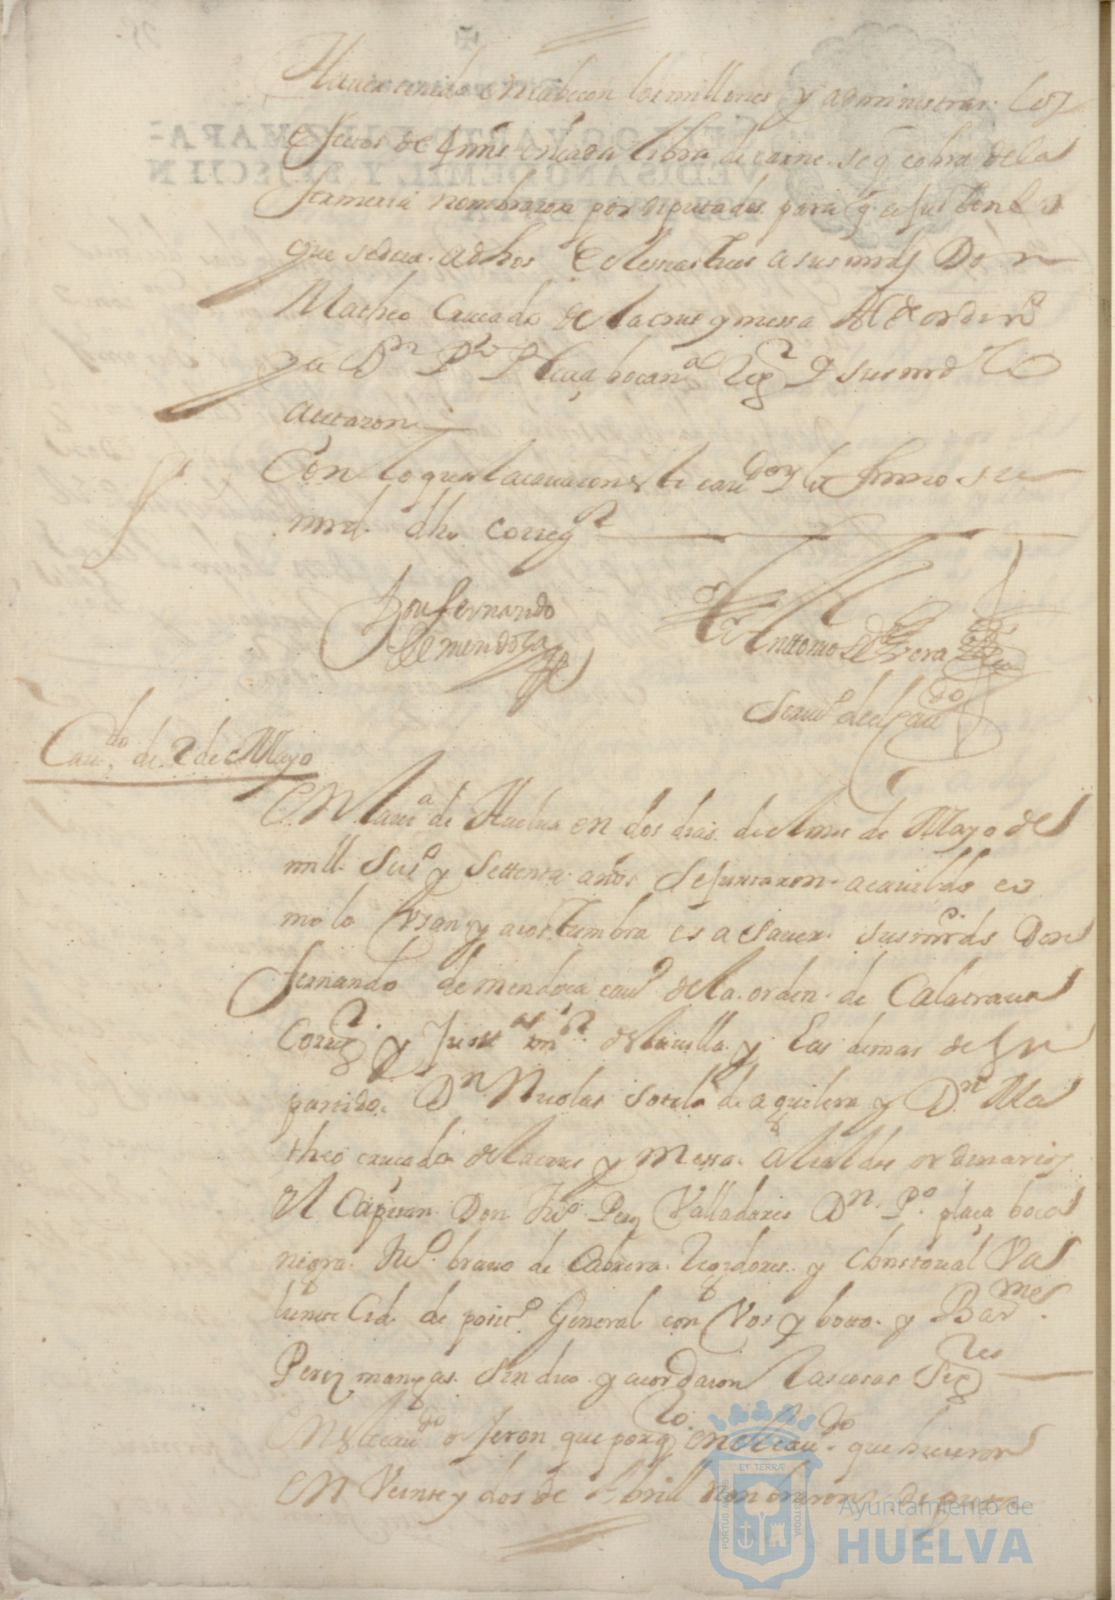 Hauer venido en la los millones y administrar los
efectos de 4 mrs en cada libra de carne. se q cobra de la
fermeria nombraron por diputados para q
que sedeua. a dhos Eclesiasticos a sus mrds Don
Matheo Cruçado de la crus y messa Alde ordinrº
y a Dn Pº Plaça bocanª Regor y sus mrds lo
acetaron
Con lo qual acauaron este caudo y lo firmo su
mrd. dho Corregor
Don fernando
de mendoza
Antonio de Vera
Scriuº del Caudo
Caudo de 2 de Mayo
EN la uiª de Huelua en dos dias. del mes de Mayo de
mill Seisº y Settenta años se juntaron a cauildo co
mo lo Vsan y acostumbra es a sauer. sus mrds Don
fernando de mendoça cauº de la orden de Calatraua
Corregor y Justª mor de la uilla y Las demas de su
partido. Dn Nicolas sotelo de aguilera y Dn Ma
theo cruçado de la crus y Messa. alcaldes ordinarios
el Capitan Don Juº Perez Valladares Dn Pº plaça boca
negra. Juº brauo de Cabrera. Regidores. y Christoual Va
liente Cid. de positº General con Vos y boto. y Barmes
Perez mangas. Sindico y acordaron Las cosas Sigtes
EN este caudo dijeron que por qto en el caudo que hicieron
EN Veinte y dos de Abrill nombraron
ET TERRÆ
PORTUS MARIS
CUSTODIA
Ayuntamiento de
HUELVA